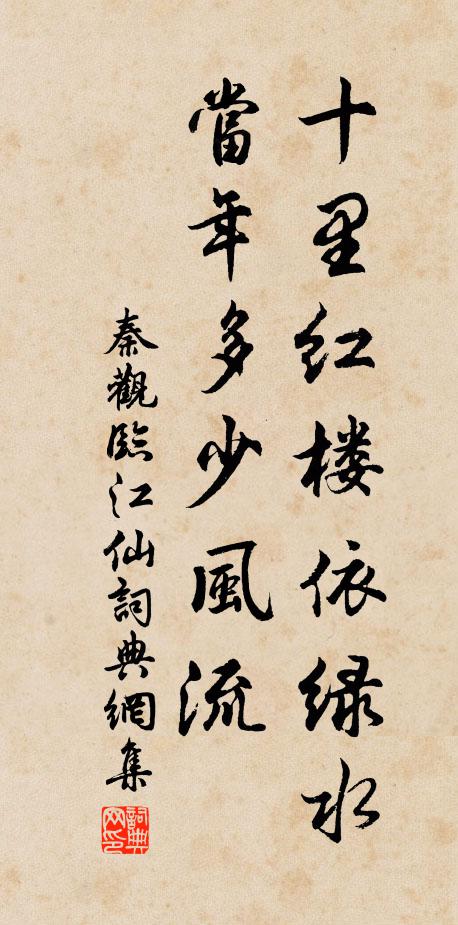 十里红楼依绿水
當年多少風流
秦觀臨江仙詞典網集
詞典网印